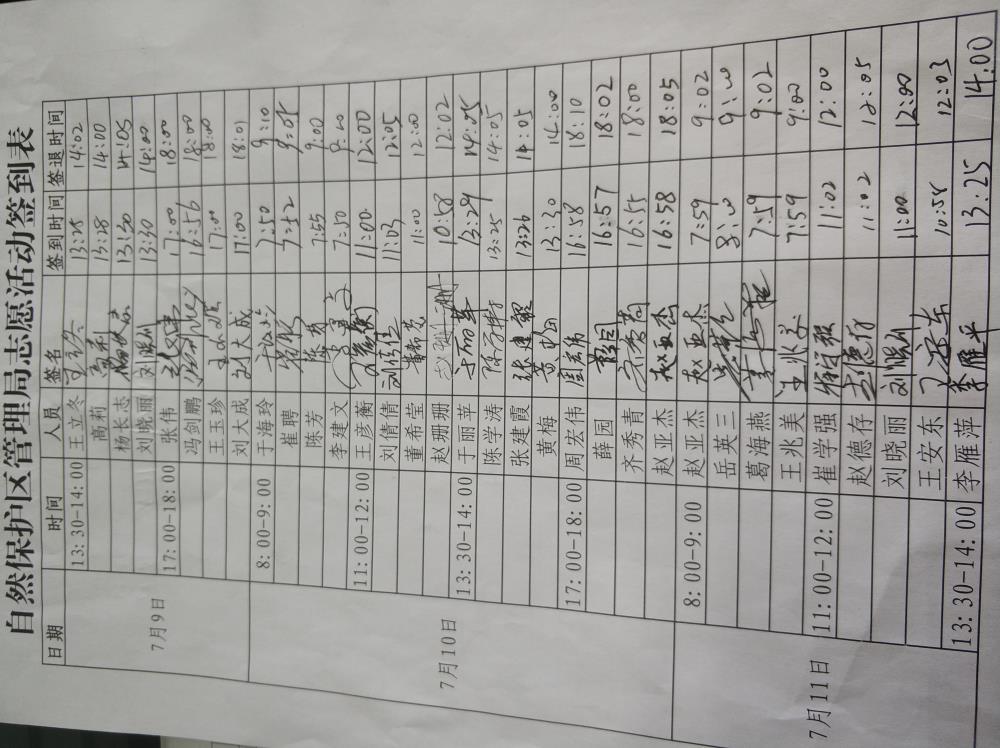 自然保护区管理局志愿活动签到表
日期 时间 人员 签名 签到时间 签退时间
7月9日 13:30-14:00 王立冬 王立冬 13:25 14:02
高莉 高莉 13:28 14:00
杨长志 杨长志 13:30 14:05
刘晓丽 刘晓丽 13:30 14:00
17:00-18:00 张伟 张伟 17:00 18:00
冯剑鹏 16:56 18:00
王玉珍 王玉珍 17:00 18:00
刘大成 刘大成 17:00 18:01
7月10日 8:00-9:00 于海玲 于海玲 7:50 9:10
崔聘 崔聘 7:52 9:05
陈芳 陈芳 7:55 9:00
李建文 7:50 9:10
11:00-12:00 王彦衡 王彦衡 11:00 12:00
刘倩倩 刘倩倩 11:03 12:05
董希堂 11:00 12:00
赵珊珊 赵珊珊 10:58 12:02
13:30-14:00 于丽苹 于丽苹 13:29 14:05
陈学涛 陈学涛 13:25 14:05
张建霞 张建霞 13:26 14:05
黄梅 黄梅 13:30 14:00
17:00-18:00 周宏伟 周宏伟 16:58 18:10
薛园 薛园 16:57 18:02
齐秀青 齐秀青 16:55 18:00
赵亚杰 赵亚杰 16:58 18:05
7月11日 8:00-9:00 赵亚杰 赵亚杰 7:59 9:02
岳英三 岳英三 8:00 9:00
葛海燕 7:59 9:02
王兆美 王兆美 7:59 9:00
11:00-12:00 崔学强 11:02 12:00
赵德存 赵德存 11:02 12:05
刘晓丽 刘晓丽 11:00 12:00
王安东 王安东 10:58 12:03
13:30-14:00 李雁萍 李雁平 13:25 14:00